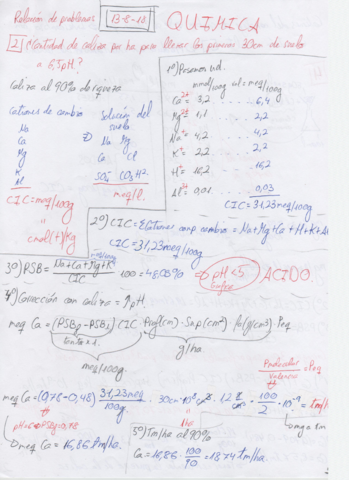 Relación de problemas 13-8-18 QUIMICA
2) ¿Cantidad de caliza que ha para llevar los primeros 30cm de suelo
a 6,5pH?
Caliza al 90% de riqueza
Cationes de cambio
Na
Ca
Mg
K
Al
CIC=meq/100g
cmol(+)/Kg
Solución del suelo
Na Mg
Ca Cl
SO4= CO3H-
meq/l.
1º) Pasamos ud.
mmol/100g ud = meq/100g
Ca2+ = 3,2 .... 6,4
Mg2+ = 1,1 .... 2,2
Na+ = 4,2 .... 4,2
K+ = 2,2 .... 2,2
H+ = 16,2 .... 16,2
Al3+ = 0,01 .... 0,03
CIC=31,23meq/100g
2º) CIC=ΣCationes comp. cambio = Na+Mg+Ca+H+K+Al
CIC=31,23meq/100g
3º) PSB = Na+Ca+Mg+K / CIC · 100 = 48,06% => pH<5 ACIDO
4º) Corrección con caliza = ↑pH
meq Ca = (PSBf - PSBi) CIC · Prof(cm) · Sup(cm²) · ρa(g/cm3) · Peq
tanto x 1
meq/100g
g/ha
Pmolecular / Valencia = Peq
meq Ca = (0,78-0,48) 31,23meq/100g · 30cm · 10^8cm² · 1,2 g/cm3 · 100/2 · 10^-9 = tm/ha
1ha
pH=6,5=>PSB=0,78
meq Ca = 16,86 tm/ha.
5º) Tm/ha al 90%
Ca = 16,86 · 100/90 = 18,74 tm/ha.